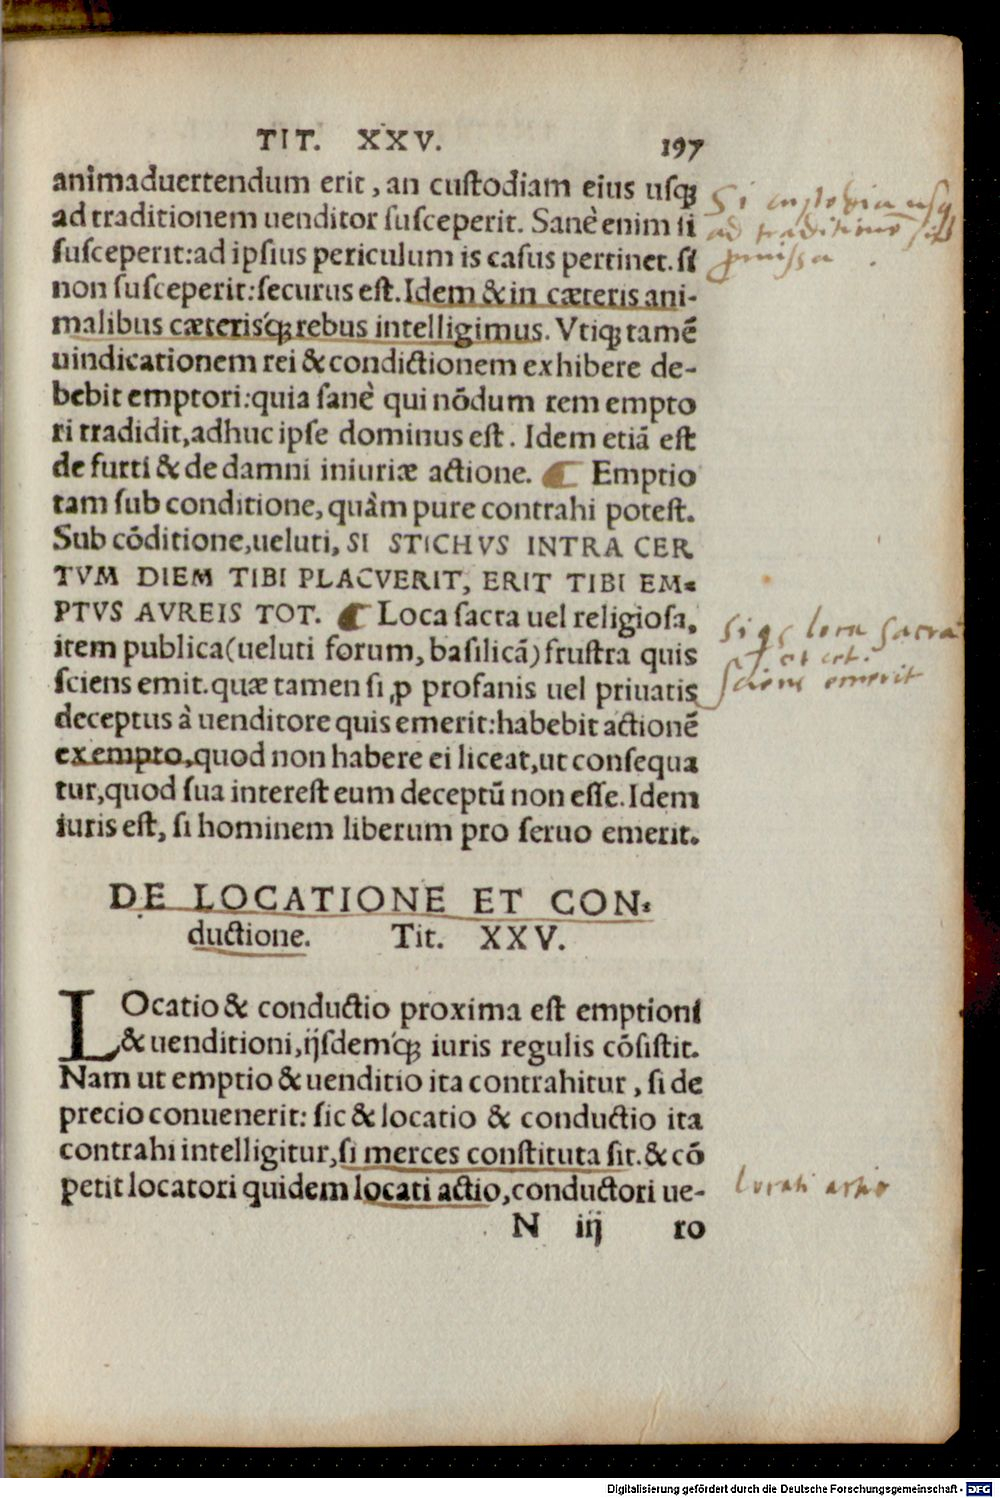 TIT. XXV. 197
animaduertendum erit, an custodiam eius usqꝫ
ad traditionem uenditor susceperit. Sanè enim si
susceperit: ad ipsius periculum is casus pertinet. si
non susceperit: securus est. Idem & in cæteris ani-
malibus cæterisq́ꝫ rebus intelligimus. Vtiqꝫ tamẽ
uindicationem rei & condictionem exhibere de-
bebit emptori: quia sanè qui nõdum rem empto
ri tradidit, adhuc ipse dominus est. Idem etiã est
de furti & de damni iniuriæ actione. ☛ Emptio
tam sub conditione, quàm pure contrahi potest.
Sub cõditione, ueluti, SI STICHVS INTRA CER
TVM DIEM TIBI PLACVERIT, ERIT TIBI EM-
PTVS AVREIS TOT. ☛ Loca sacra uel religiosa,
item publica (ueluti forum, basilicã) frustra quis
sciens emit. quæ tamen si ꝓ profanis uel priuatis
deceptus à uenditore quis emerit: habebit actionẽ
ex empto, quod non habere ei liceat, ut consequa
tur, quod sua interest eum deceptũ non esse. Idem
iuris est, si hominem liberum pro seruo emerit.
DE LOCATIONE ET CON-
ductione. Tit. XXV.
LOcatio & conductio proxima est emptioni
& uenditioni, ijsdemq́ꝫ iuris regulis cõsistit.
Nam ut emptio & uenditio ita contrahitur, si de
precio conuenerit: sic & locatio & conductio ita
contrahi intelligitur, si merces constituta sit. & cõ
petit locatori quidem locati actio, conductori ue-
N iij ro
Si custodia usq
ad traditionẽ sit
promissa.
Si qs loca sacra
sciens emerit
locati actio
Digitalisierung gefördert durch die Deutsche Forschungsgemeinschaft - DFG